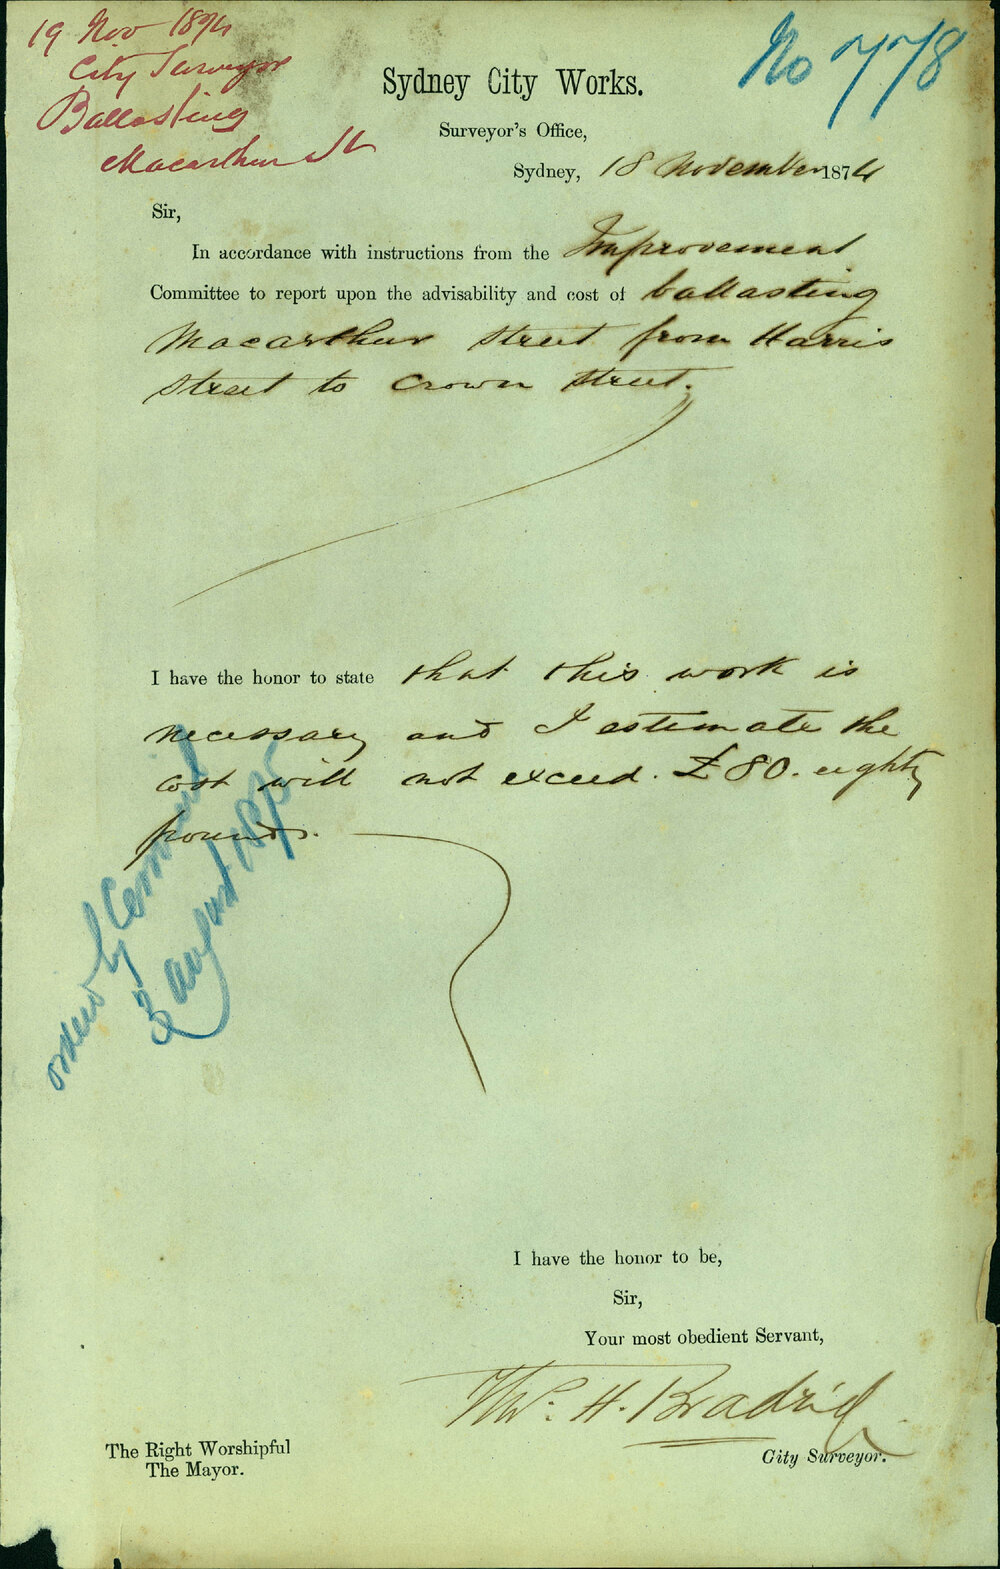 19 Nov 1874
City Surveyor
Ballasting
Macarthur St
No 778
Sydney City Works.
Surveyor's Office,
Sydney, 18 November 1874
Sir,
In accordance with instructions from the Improvement
Committee to report upon the advisability and cost of ballasting
Macarthur street from Harris
street to Crown street.
I have the honor to state that this work is
necessary and I estimate the
cost will not exceed. £80. eighty
pounds.
ordered by Council
3 August 1875
I have the honor to be,
Sir,
Your most obedient Servant,
Thos. H. Bradridge
City Surveyor.
The Right Worshipful
The Mayor.